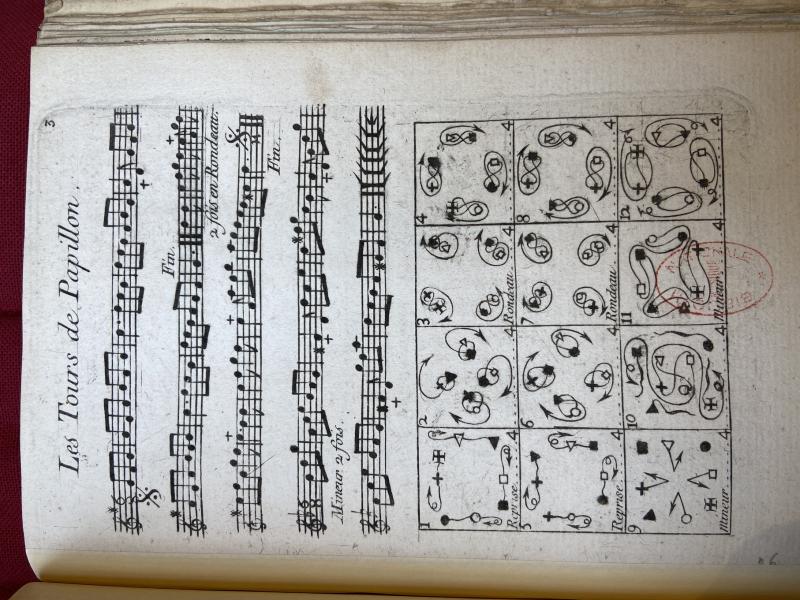 3
Les Tours de Papillon.
Fin.
2 fois en Rondeau.
Fin.
Mineur 2 fois.
1
4
Reprise.
2
4
3
4
Rondeau.
4
4
5
4
Reprise.
6
4
7
4
Rondeau.
8
4
9
4
Mineur.
10
4
11
4
Mineur
12
4